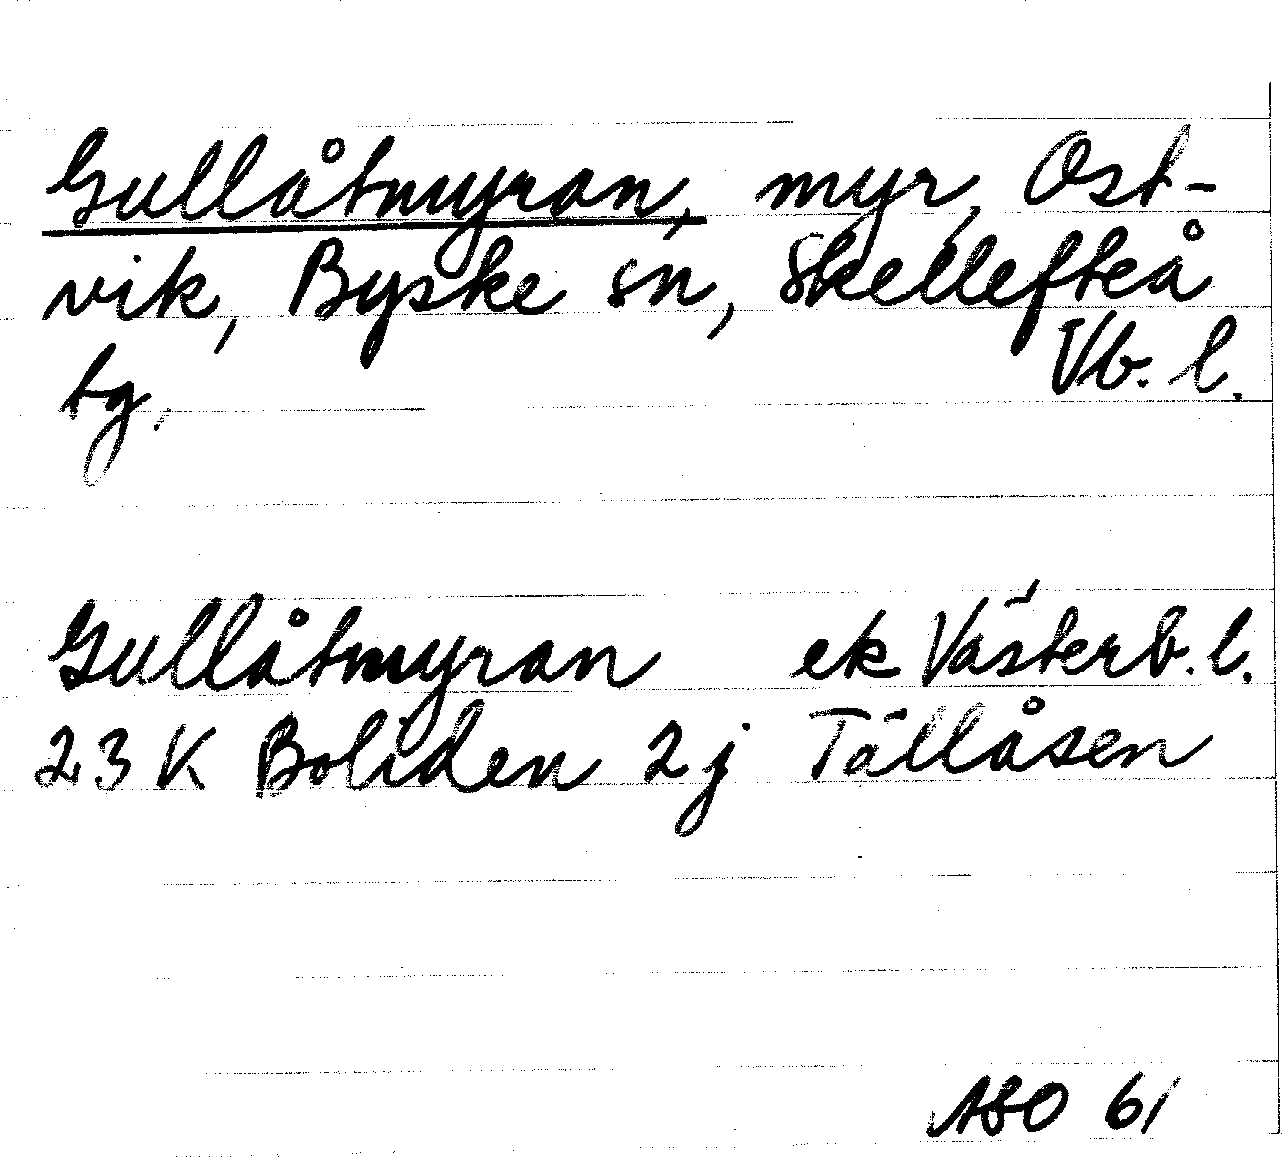 Gullåtmyran, myr, Ost-
vik, Byske sn, Skellefteå
tg. Vb. l.
Gullåtmyran ek Västerb. l.
23 K Boliden 2j Tällåsen
ABO 61